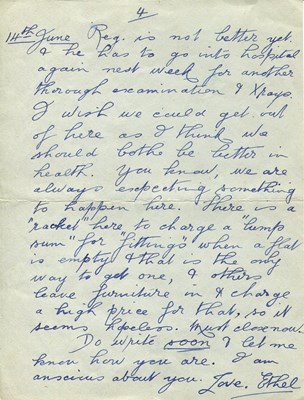 4
14th June Reg. is not better yet.
& he has to go into hospital
again next week for another
thorough examination & Xrays.
I wish we could get out
of here as I think we
should bothe be better in
health. You know, we are
always expecting something
to happen here. There is a
"racket" here, to charge a "lump
sum" for "fittings" when a flat
is empty & that is the only
way to get one, & others
leave furniture in & charge
a high price for that, so it
seems hopeless. Must close now.
Do write soon & let me
know how you are. I am
anxious about you. Love, Ethel